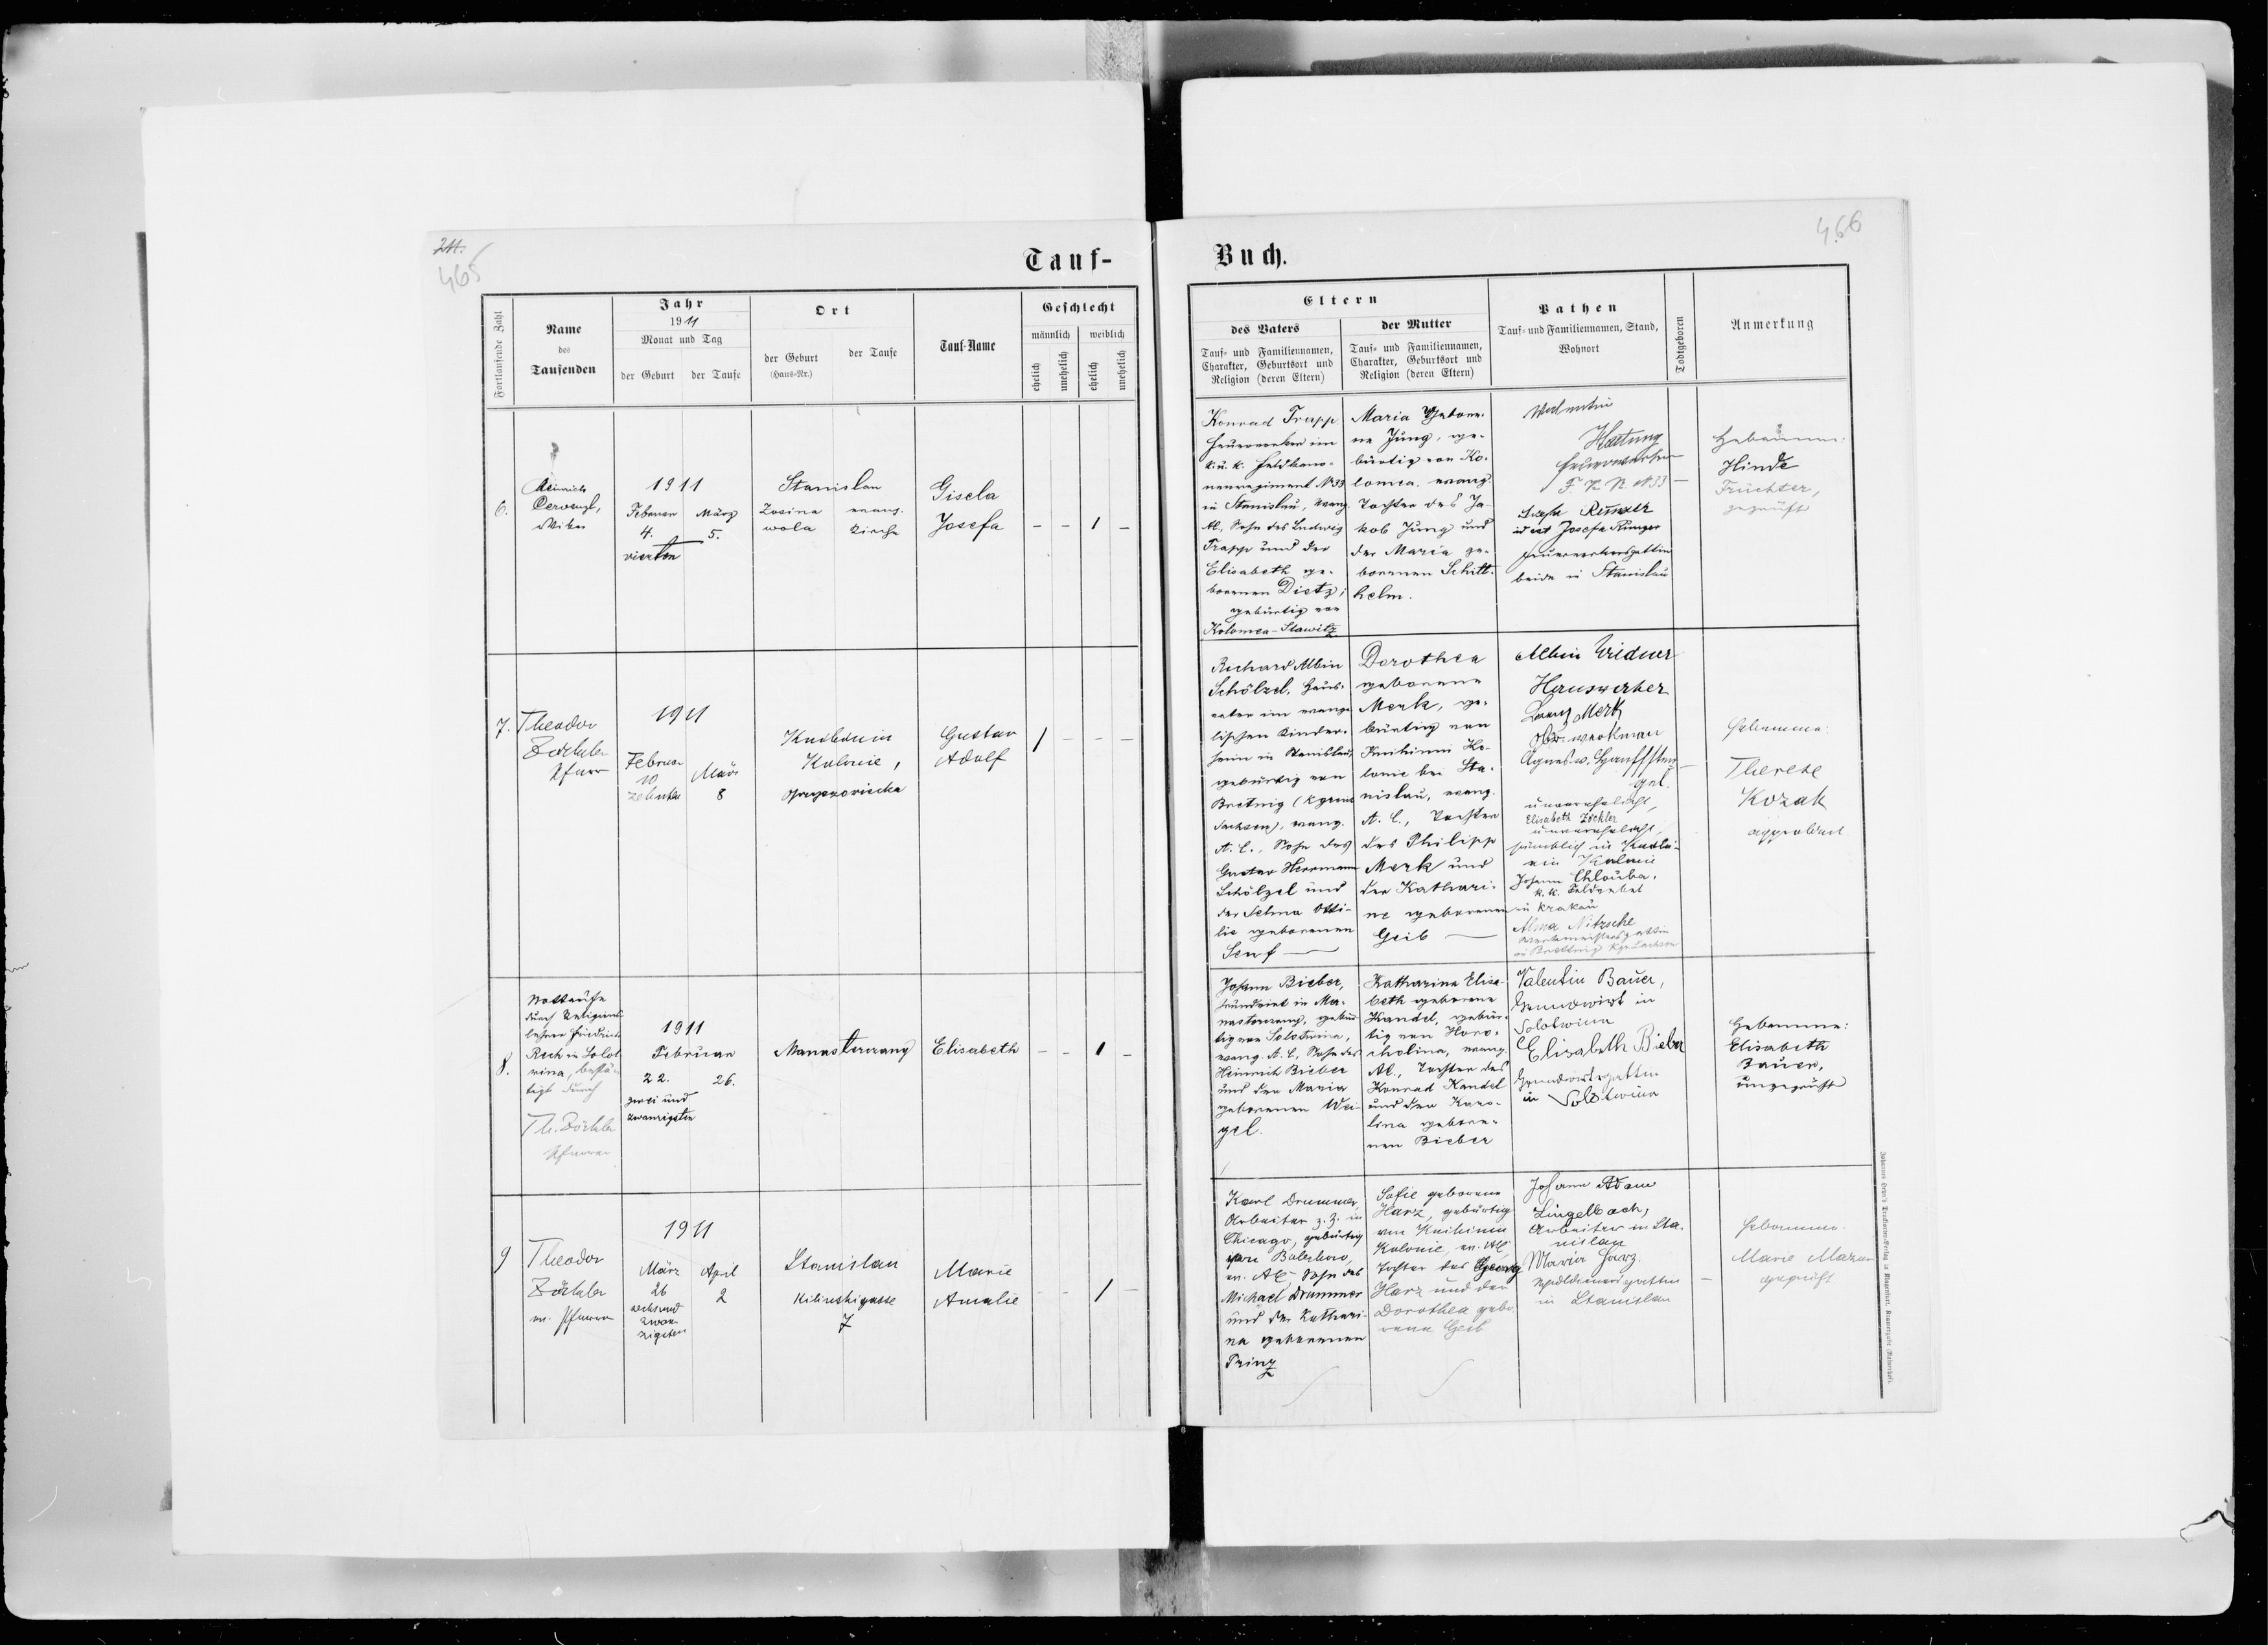 465
466
Tauf-
Buch.
Fortlaufende Zahl
Name
des
Taufenden
Jahr
1911
Monat und Tag
der Geburt
der Taufe
Ort
der Geburt
(Haus-Nr.)
der Taufe
Tauf-Name
Geschlecht
männlich
weiblich
ehelich
unehelich
ehelich
unehelich
Eltern
des Vaters
Tauf- und Familiennamen,
Charakter, Geburtsort und
Religion (deren Eltern)
der Mutter
Tauf- und Familiennamen,
Charakter, Geburtsort und
Religion (deren Eltern)
Pathen
Tauf- und Familiennamen, Stand,
Wohnort
Todtgeboren
Anmerkung
6.
Heinrich
Vikar
1911
Februar
4.
vierten
März
5.
Stanislau
Zosina
wola
evang.
Kirche
Gisela
Josefa
- - 1 -
Konrad Trapp
Feuerwerker im
k. u. k. Feldkano-
nenregiment N 33
in Stanislau, evang.
AC., Sohn des Ludwig
Trapp und der
Elisabeth ge-
borenen Dietz;
gebürtig von
Kolomea-Slawitz
Maria Gebore-
ne Jung, ge-
bürtig von Ko-
lomea. evang.
Tochter des Ja-
kob Jung und
der Maria ge-
borenen Schitt-
helm.
Valentin
Hartung
Feuerwerker
F K R N 33
id est Josefa Runger
Feuerwerkersgattin
beide in Stanislau
-
Hebamme:
Hinde
Früchter,
geprüft
7.
Theodor
Zöckler
Pfarr
1911
Februar
10
zehnten
März
8
Knihinin
Kolonie,
Gustav
Adolf
1 - - -
Richard Albin
Schölzel, Haus-
vater im evange-
lischen Kinder-
heim in Stanislau,
gebürtig von
Bretnig (Kgreich
Sachsen), evang.
A. C., Sohn des
Gustav Herrmann
Schölzel und
der Selma Otti-
lie geborenen
Senf
Dorothea
geborene
Merk, ge-
bürtig von
Knihinin Ko-
lonie bei Sta-
nislau, evang.
A. C., Tochter
des Philipp
Merk und
der Kathari-
ne geborenen
Geib
Albin Weidner
Hauswerker
Lorenz Merk
Oberwerkman
unverehelicht,
Elisabeth Zöckler
unverehelicht,
sämtlich in Knihi-
nin Kolonie
Johann Chlouba,
k. k. Feldwebel
in Krakau
Alma Nitzsche
Werkmeistersgattin
in Bretnig Kgr. Sachsen
-
Hebamme:
Therese
Kozak
approbiert
8.
Nottaufe
durch Religions-
lehrer Friedrich
Rech in Solot-
wina, bestä-
tigt durch
Th. Zöckler
Pfarrer
1911
Februar
22.
26.
zwei und
zwanzigsten
Manasterczany
Elisabeth
- - 1 -
Johann Bieber,
Grundwirt in Ma-
nasterczany, gebür-
tig von Solotwina,
evang. A. C., Sohn des
Heinrich Bieber
und der Maria
geborenen Wei-
gel.
Katharina Elisa-
beth geborene
Kandel, gebür-
tig von Horo-
cholina, evang.
AC., Tochter des
Konrad Kandel
und der Karo-
lina gebore-
nen Bieber
Valentin Bauer,
Grundwirt in
Solotwina
Elisabeth Bieber
Grundwirtsgattin
in Solotwina
Hebamme:
Elisabeth
Bauer,
ungeprüft
9
Theodor
Zöckler
ev. Pfarrer
1911
März
26
sechsund
zwan-
zigsten
April
2
Stanislau
Kilinskigasse
7
Marie
Amalie
- - 1 -
Karl Drummer,
Arbeiter z. Z. in
Chicago, gebürtig
von Bolechow,
ev. AC, Sohn des
Michael Drummer
und der Kathari-
na geborenen
Prinz
Sofie geborene
Harz, gebürtig
von Knihinin
Kolonie, ev. AC
Tochter des Georg
Harz und der
Dorothea gebo-
rene Geib
Johann Adam
Lingelbach,
Arbeiter in Sta-
nislau
Maria Harz.
in Stanislau
-
Hebamme
Marie Mazur
geprüft